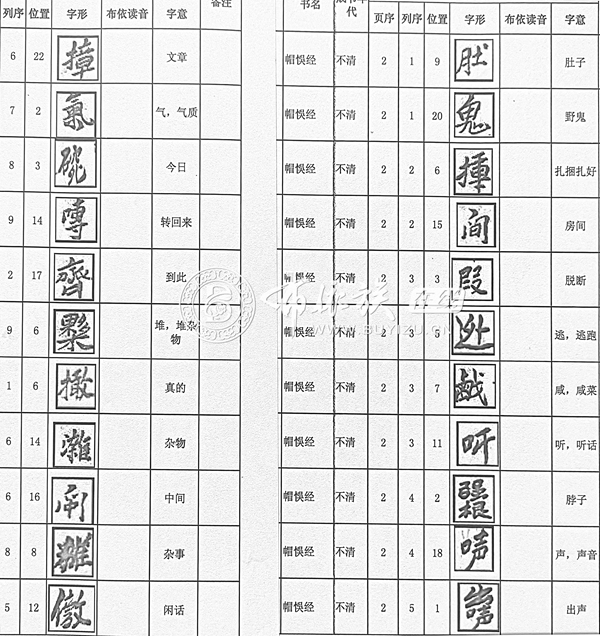 列序 位置 字形 布依读音 字意 备注
6 22 撞 文章
7 2 氣 气，气质
8 3 今日
9 14 噂 转回来
2 17 齊 到此
9 6 堆，堆杂物
1 6 撒 真的
6 14 灘 杂物
6 16 中间
8 8 杂事
5 12 儌 闲话
书名 页序 列序 位置 字形 布依读音 字意
帽悮经 不清 2 1 9 肚 肚子
帽悮经 不清 2 1 20 鬼 野鬼
帽悮经 不清 2 2 6 捶 扎捆扎好
帽悮经 不清 2 2 15 间 房间
帽悮经 不清 2 3 3 段 脱断
帽悮经 不清 2 3 5 逃，逃跑
帽悮经 不清 2 3 7 咸，咸菜
帽悮经 不清 2 3 11 听，听话
帽悮经 不清 2 4 2 脖子
帽悮经 不清 2 4 18 声，声音
帽悮经 不清 2 5 1 出声
布依族 WWW.BUYIZU.CN